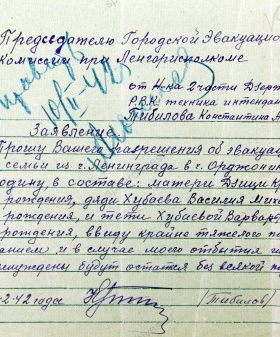 Председателю Городской Эвакуацио
Комиссии при Ленгорисполкоме
от Н-ка 2 части Дзерж
Р.В.К. техника интенданта
Тибилова Константина А
Заявление
Прошу Вашего разрешения об эвакуац
семьи из г. Ленинграда в г. Орджони
родину в составе: матери
рождения, дяди Хубаева Василия Миха
рождения, и тети Хубаевой Варвар
рождения, ввиду крайне тяжелого по
и в случае моего отбытия из
вынуждены будут остатся без всякой по
2-42 года
/Тибилов/